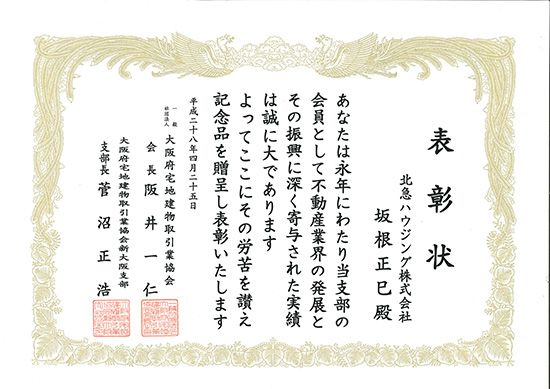 表彰状
北急ハウジング株式会社
坂根正巳殿
あなたは永年にわたり当支部の
会員として不動産業界の発展と
その振興に深く寄与された実績
は誠に大であります
よってここにその労苦を讃え
記念品を贈呈し表彰いたします
平成二十八年四月二十五日
一般社団法人 大阪府宅地建物取引業協会
会長 阪井一仁
大阪府宅地建物取引業協会新大阪支部
支部長 菅沼正浩